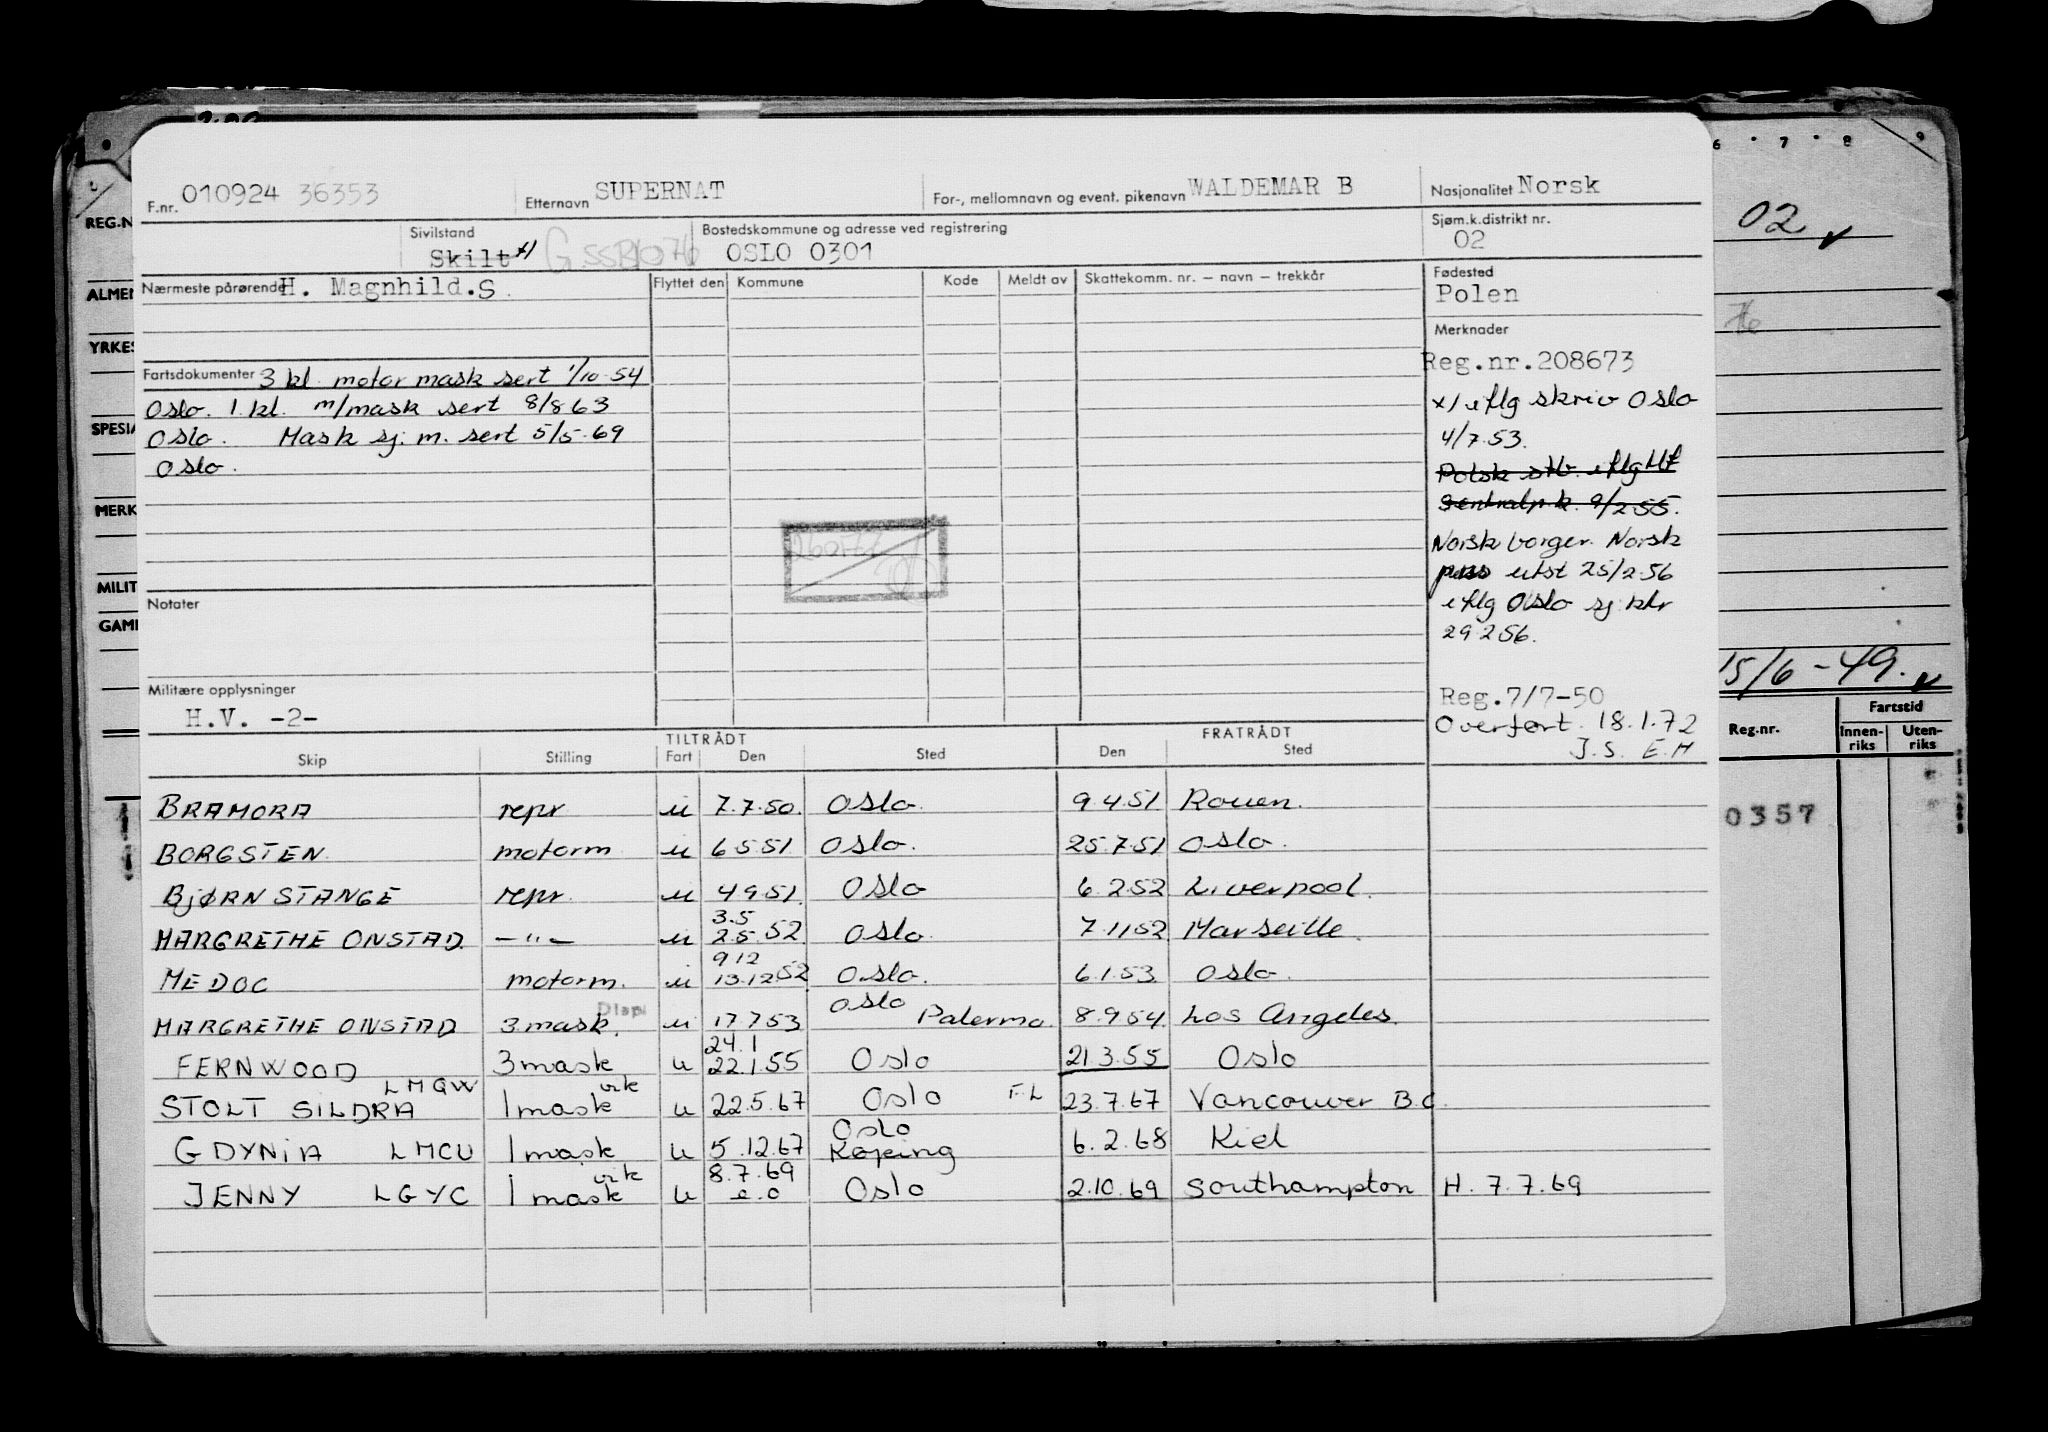 F.nr. 010924 36353 Etternavn SUPERNAT For-, mellomnavn og event. pikenavn WALDEMAR B Nasjonalitet Norsk
Sivilstand Skilt x) Bostedskommune og adresse ved registrering OSLO 0301 Sjøm.k.distrikt nr. 02
Nærmeste pårørende H. Magnhild.S. Flyttet den Kommune Kode Meldt av Skattekomm. nr. — navn — trekkår Fødested
Polen
Merknader
Reg.nr.208673
x) iflg skriv Oslo
4/7.53.
Polsk stb. iflg
9/2 55.
Norsk borger. Norsk
pass utst 25/2-56
iflg Oslo sj. ktr
29 2 56.
Reg.7/7-50
Overført. 18.1.72
J.S. E.H
Fartsdokumenter 3 kl. motor mask sert 1/10-54
Oslo. 1. kl. m/mask sert 8/8 63
Oslo. Mask sj. m. sert 5/5-69
Oslo.
Notater
Militære opplysninger
H.V. -2-
TILTRÅDT FRATRÅDT
Skip Stilling Fart Den Sted Den Sted
BRAMORA repr u 7.7.50. Oslo. 9.4.51 Rouen.
BORGSTEN motorm u 6 5 51 Oslo. 25.7.51 Oslo.
BJØRN STANGE repr. u 4 9 51. Oslo 6.2.52 Liverpool.
3.5
MARGRETHE ONSTAD — " — u 2.5.52 Oslo. 7.11 52 Marseille.
9 12
MEDOC motorm. u 13.12 52 Oslo. 6.1.53 Oslo.
Disp Oslo
MARGRETHE ONSTAD 3 mask. u 17 7 53 Palermo. 8.9 54. Los Angeles.
24.1
FERNWOOD 3 mask u 22.1.55 Oslo 21.3.55 Oslo
LMQW
STOLT SILDRA 1 mask u 22.5.67 Oslo F.L 23.7.67 Vancouver B.C.
Oslo
GDYNIA LMCU 1 mask u 5.12.67 Køping 6.2.68 Kiel
8.7.69
JENNY LGYC 1 mask u e.o Oslo 2.10.69 Southampton H. 7.7.69
REG.N
ALMEN
YRKES
SPESIA
MERK
MILIT
GAML
6 7 8 9
02
76
15/6-49.
Reg.nr. Fartstid
Innenriks Utenriks
0357